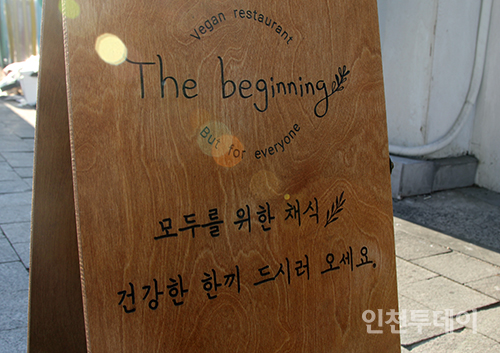 Vegan restaurant
The beginning
But for everyone
모두를 위한 채식
건강한 한끼 드시러 오세요.
인천투데이